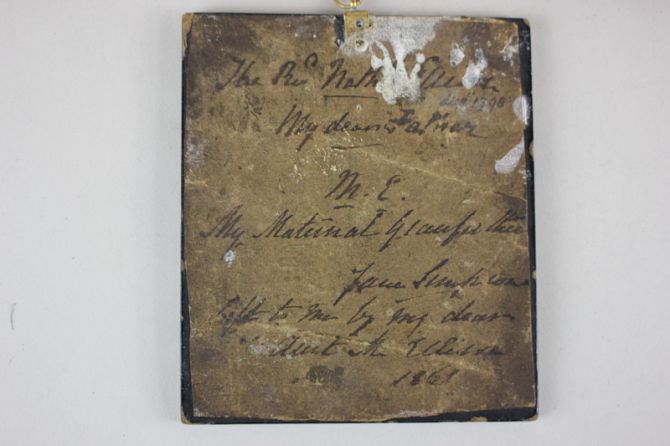 The Revd Nath Ellison
1798
My dearest Father
M. E.
My Maternal Grandfather
Jane Simpson
left to me by my dear
Aunt M. Ellison
1861